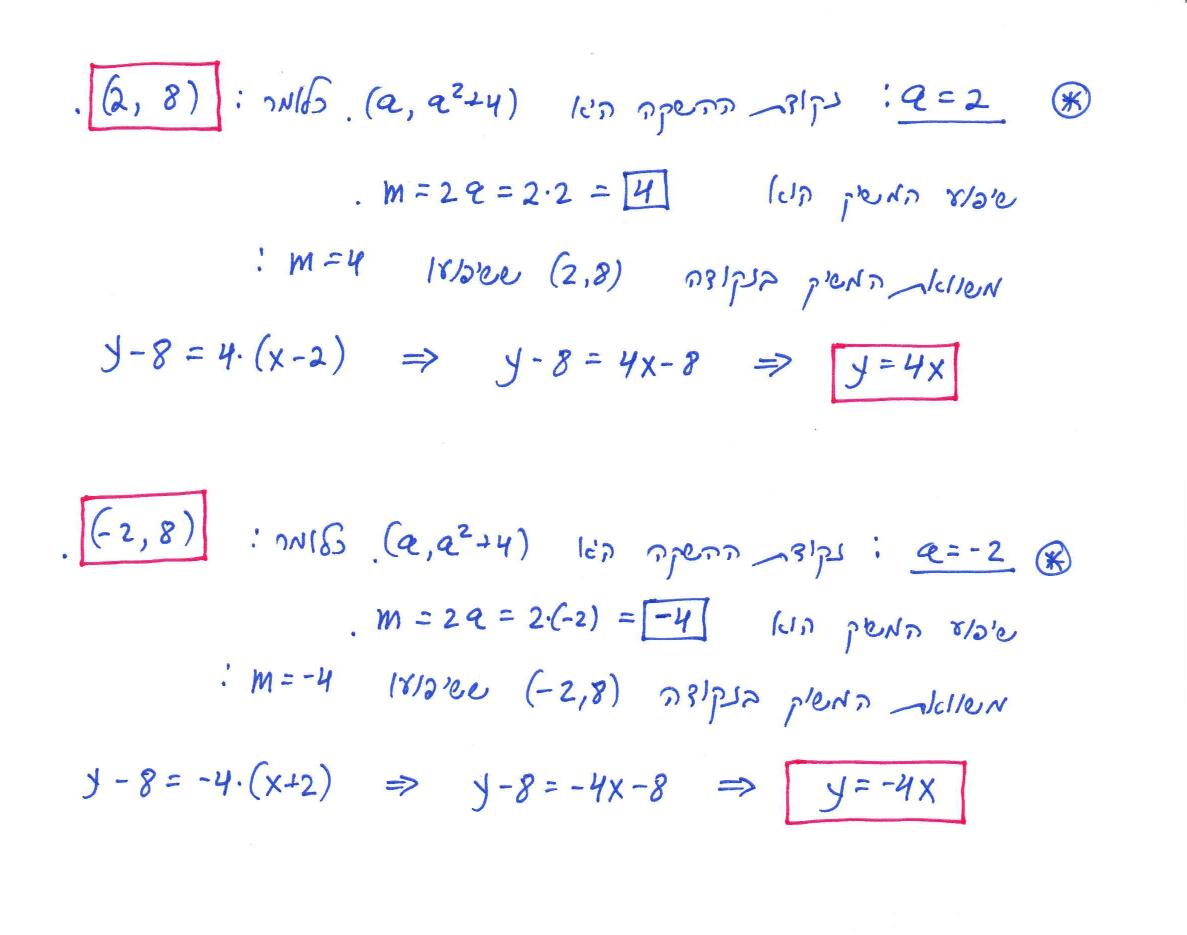 ⊛ a=2 : נקודת ההשקה היא (a, a²+4). כלומר : (2, 8).
שיפוע המשיק הוא m = 2a = 2·2 = 4.
משוואת המשיק בנקודה (2,8) ששיפועו m=4 :
y-8 = 4·(x-2) ⇒ y-8 = 4x-8 ⇒ y=4x
⊛ a=-2 : נקודת ההשקה היא (a, a²+4). כלומר : (-2, 8).
שיפוע המשיק הוא m = 2a = 2·(-2) = -4.
משוואת המשיק בנקודה (-2,8) ששיפועו m=-4 :
y-8 = -4·(x+2) ⇒ y-8 = -4x-8 ⇒ y=-4x